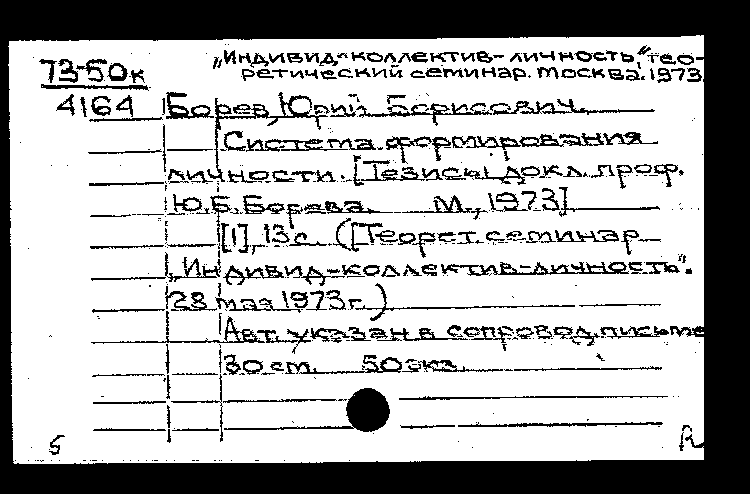 73-50к
4164
„Индивид-коллектив-личность", тео-
ретический семинар. Москва. 1973.
Борев, Юрий Борисович.
Система формирования
личности. [Тезисы докл. проф.
Ю.Б. Борева. М., 1973]
[1], 13 с. ([Теорет. семинар
„Индивид-коллектив-личность".
28 мая 1973 г.)
Авт. указан в сопровод. письме
30 ст. 50 экз.
5
R